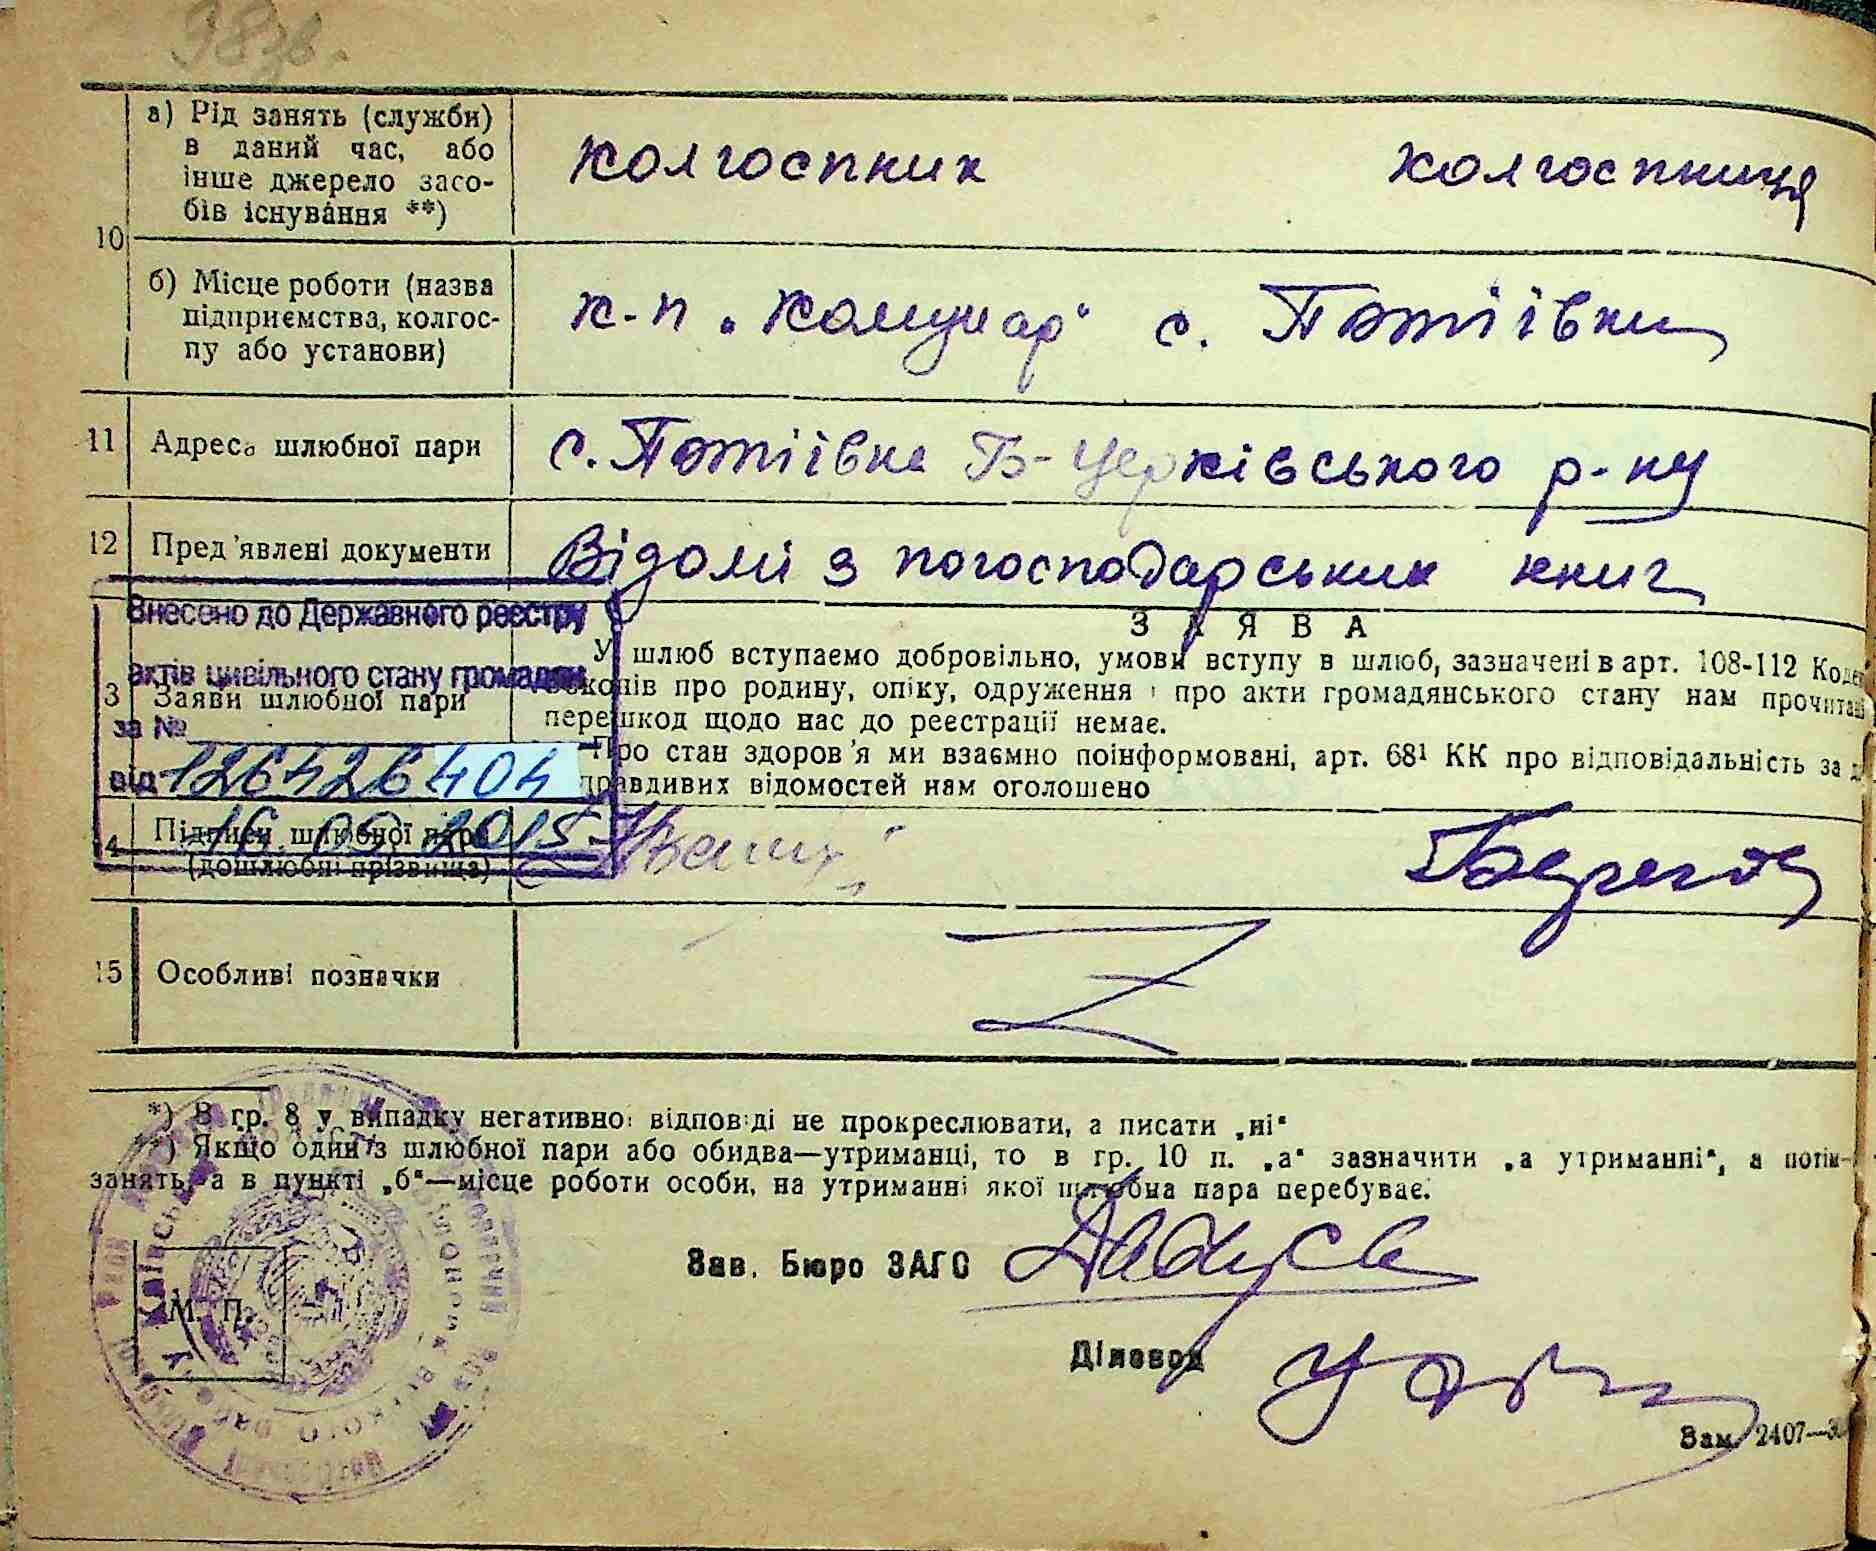 98зв.
10
а) Рід занять (служби)
в даний час, або
інше джерело засо-
бів існування **)
колгоспник колгоспниця
б) Місце роботи (назва
підприємства, колгос-
пу або установи)
к-п „Комунар" с. Потіївки
11 Адреса шлюбної пари с. Потіївка Б-Церківського р-ну
12 Пред'явлені документи Відомі з погосподарських книг
Внесено до Державного реєстру
актів цивільного стану громадян
за №
від 126426404
16.09.2015
3 Заяви шлюбної пари
ЗАЯВА
У шлюб вступаємо добровільно, умови вступу в шлюб, зазначені в арт. 108-112 Кодек
законів про родину, опіку, одруження і про акти громадянського стану нам прочитані
перешкод щодо нас до реєстрації немає.
Про стан здоров'я ми взаємно поінформовані, арт. 68¹ КК про відповідальність за д
правдивих відомостей нам оголошено
4 Підписи шлюбної пари
(дошлюбні прізвища)
15 Особливі позначки
*) В гр. 8 у випадку негативної відповіді не прокреслювати, а писати „ні"
**) Якщо один із шлюбної пари або обидва—утриманці, то в гр. 10 п. „а" зазначити „а утриманні", а потім—
занять, а в пункті „б"—місце роботи особи, на утриманні якої шлюбна пара перебуває.
М. П.
Зав. Бюро ЗАГС
Діловод
Зам. 2407—